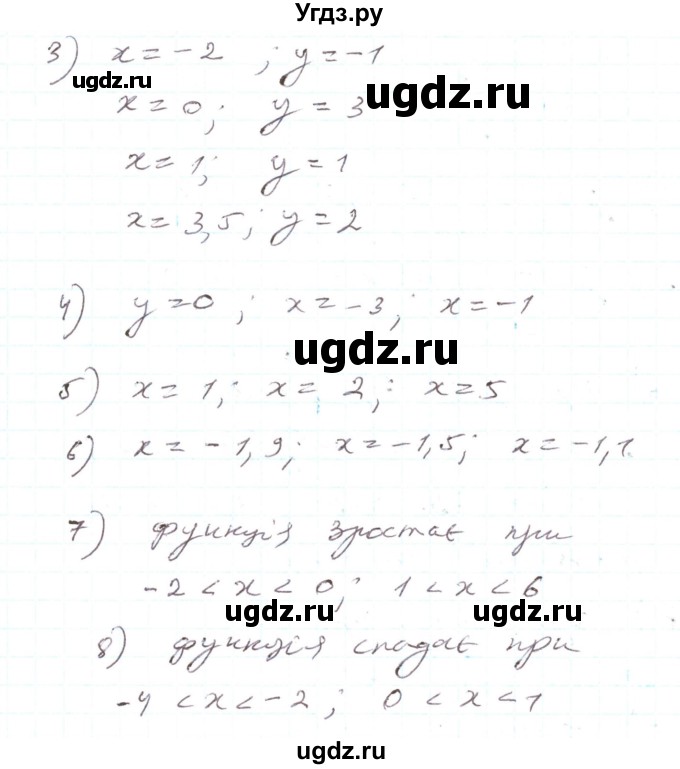 Угдз.ру
3) x = -2 ; y = -1
ugdz.ru
ugdz.ru
x = 0; y = 3
x = 1; y = 1
x = 3,5; y = 2
4) y = 0 ; x = -3; x = -1
ugdz.ru
5) x = 1; x = 2; x = 5
6) x = -1,9; x = -1,5; x = -1,1
7) функція зростає при
-2 < x < 0; 1 < x < 6
ugdz.ru
ugdz.ru
8) функція спадає при
-4 < x < -2; 0 < x < 1
ugdz.ru